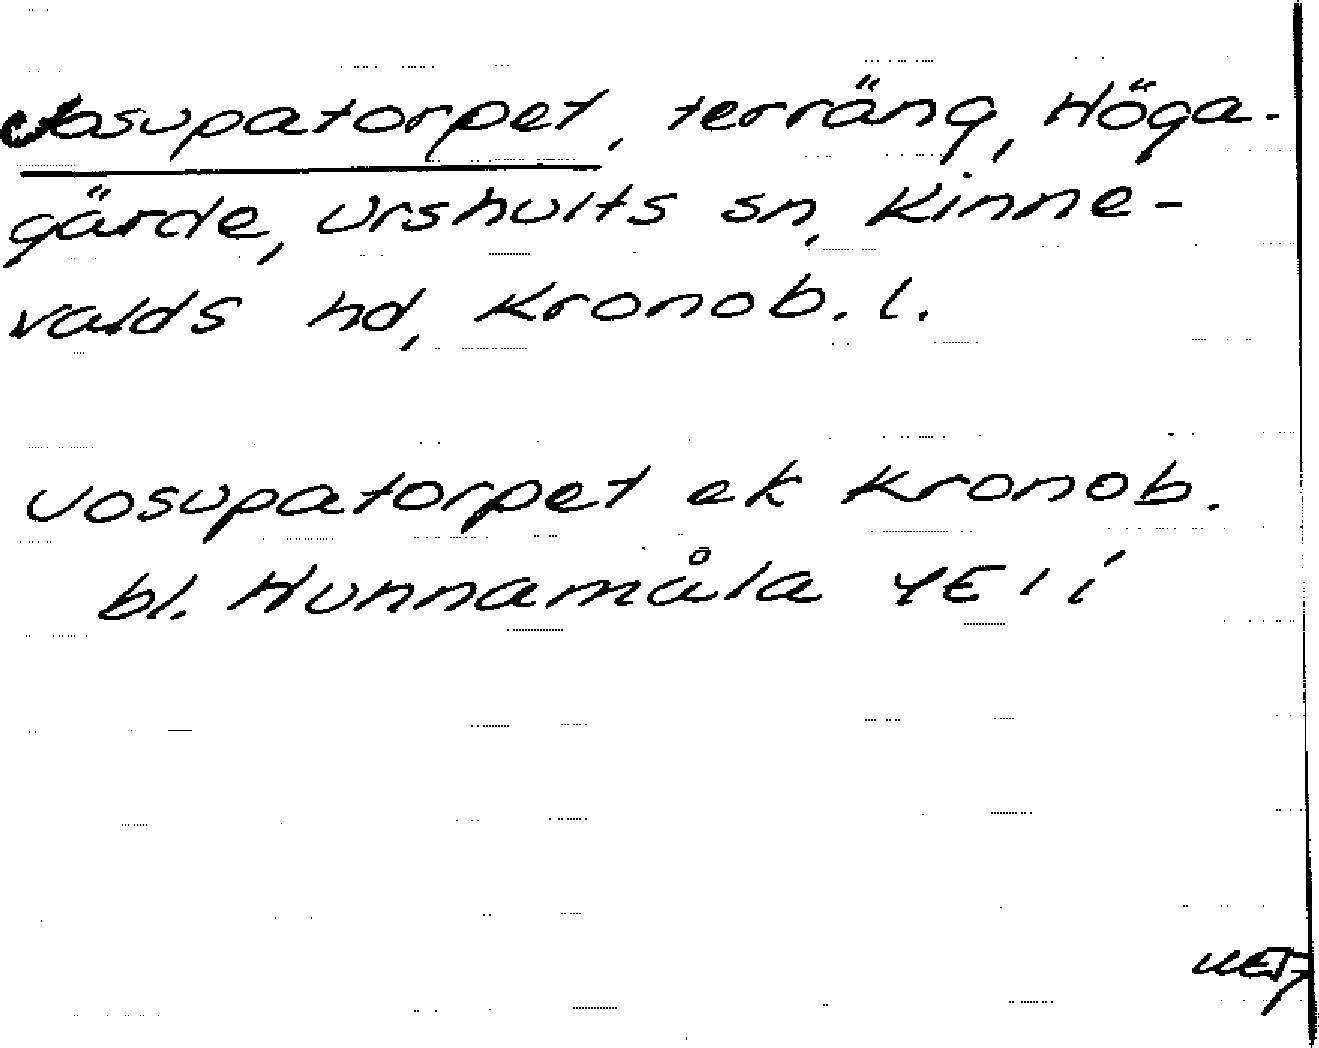 Josupatorpet, terräng, Höga-
gärde, Urshults sn, Kinne-
valds hd, Kronob. l.
Josupatorpet ek Kronob.
bl. Hunnamåla 4E 1 i